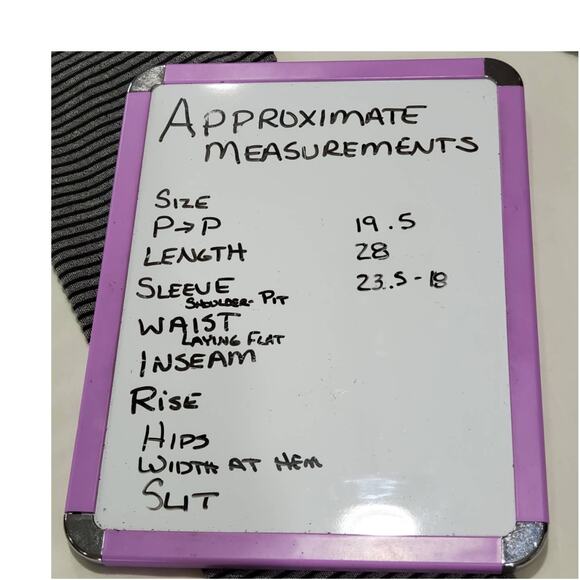 APPROXIMATE
MEASUREMENTS
SIZE
P→P 19.5
LENGTH 28
SLEEVE 23.5-18
SHOULDER- PIT
WAIST
LAYING FLAT
INSEAM
RISE
HIPS
WIDTH AT HEM
SLIT